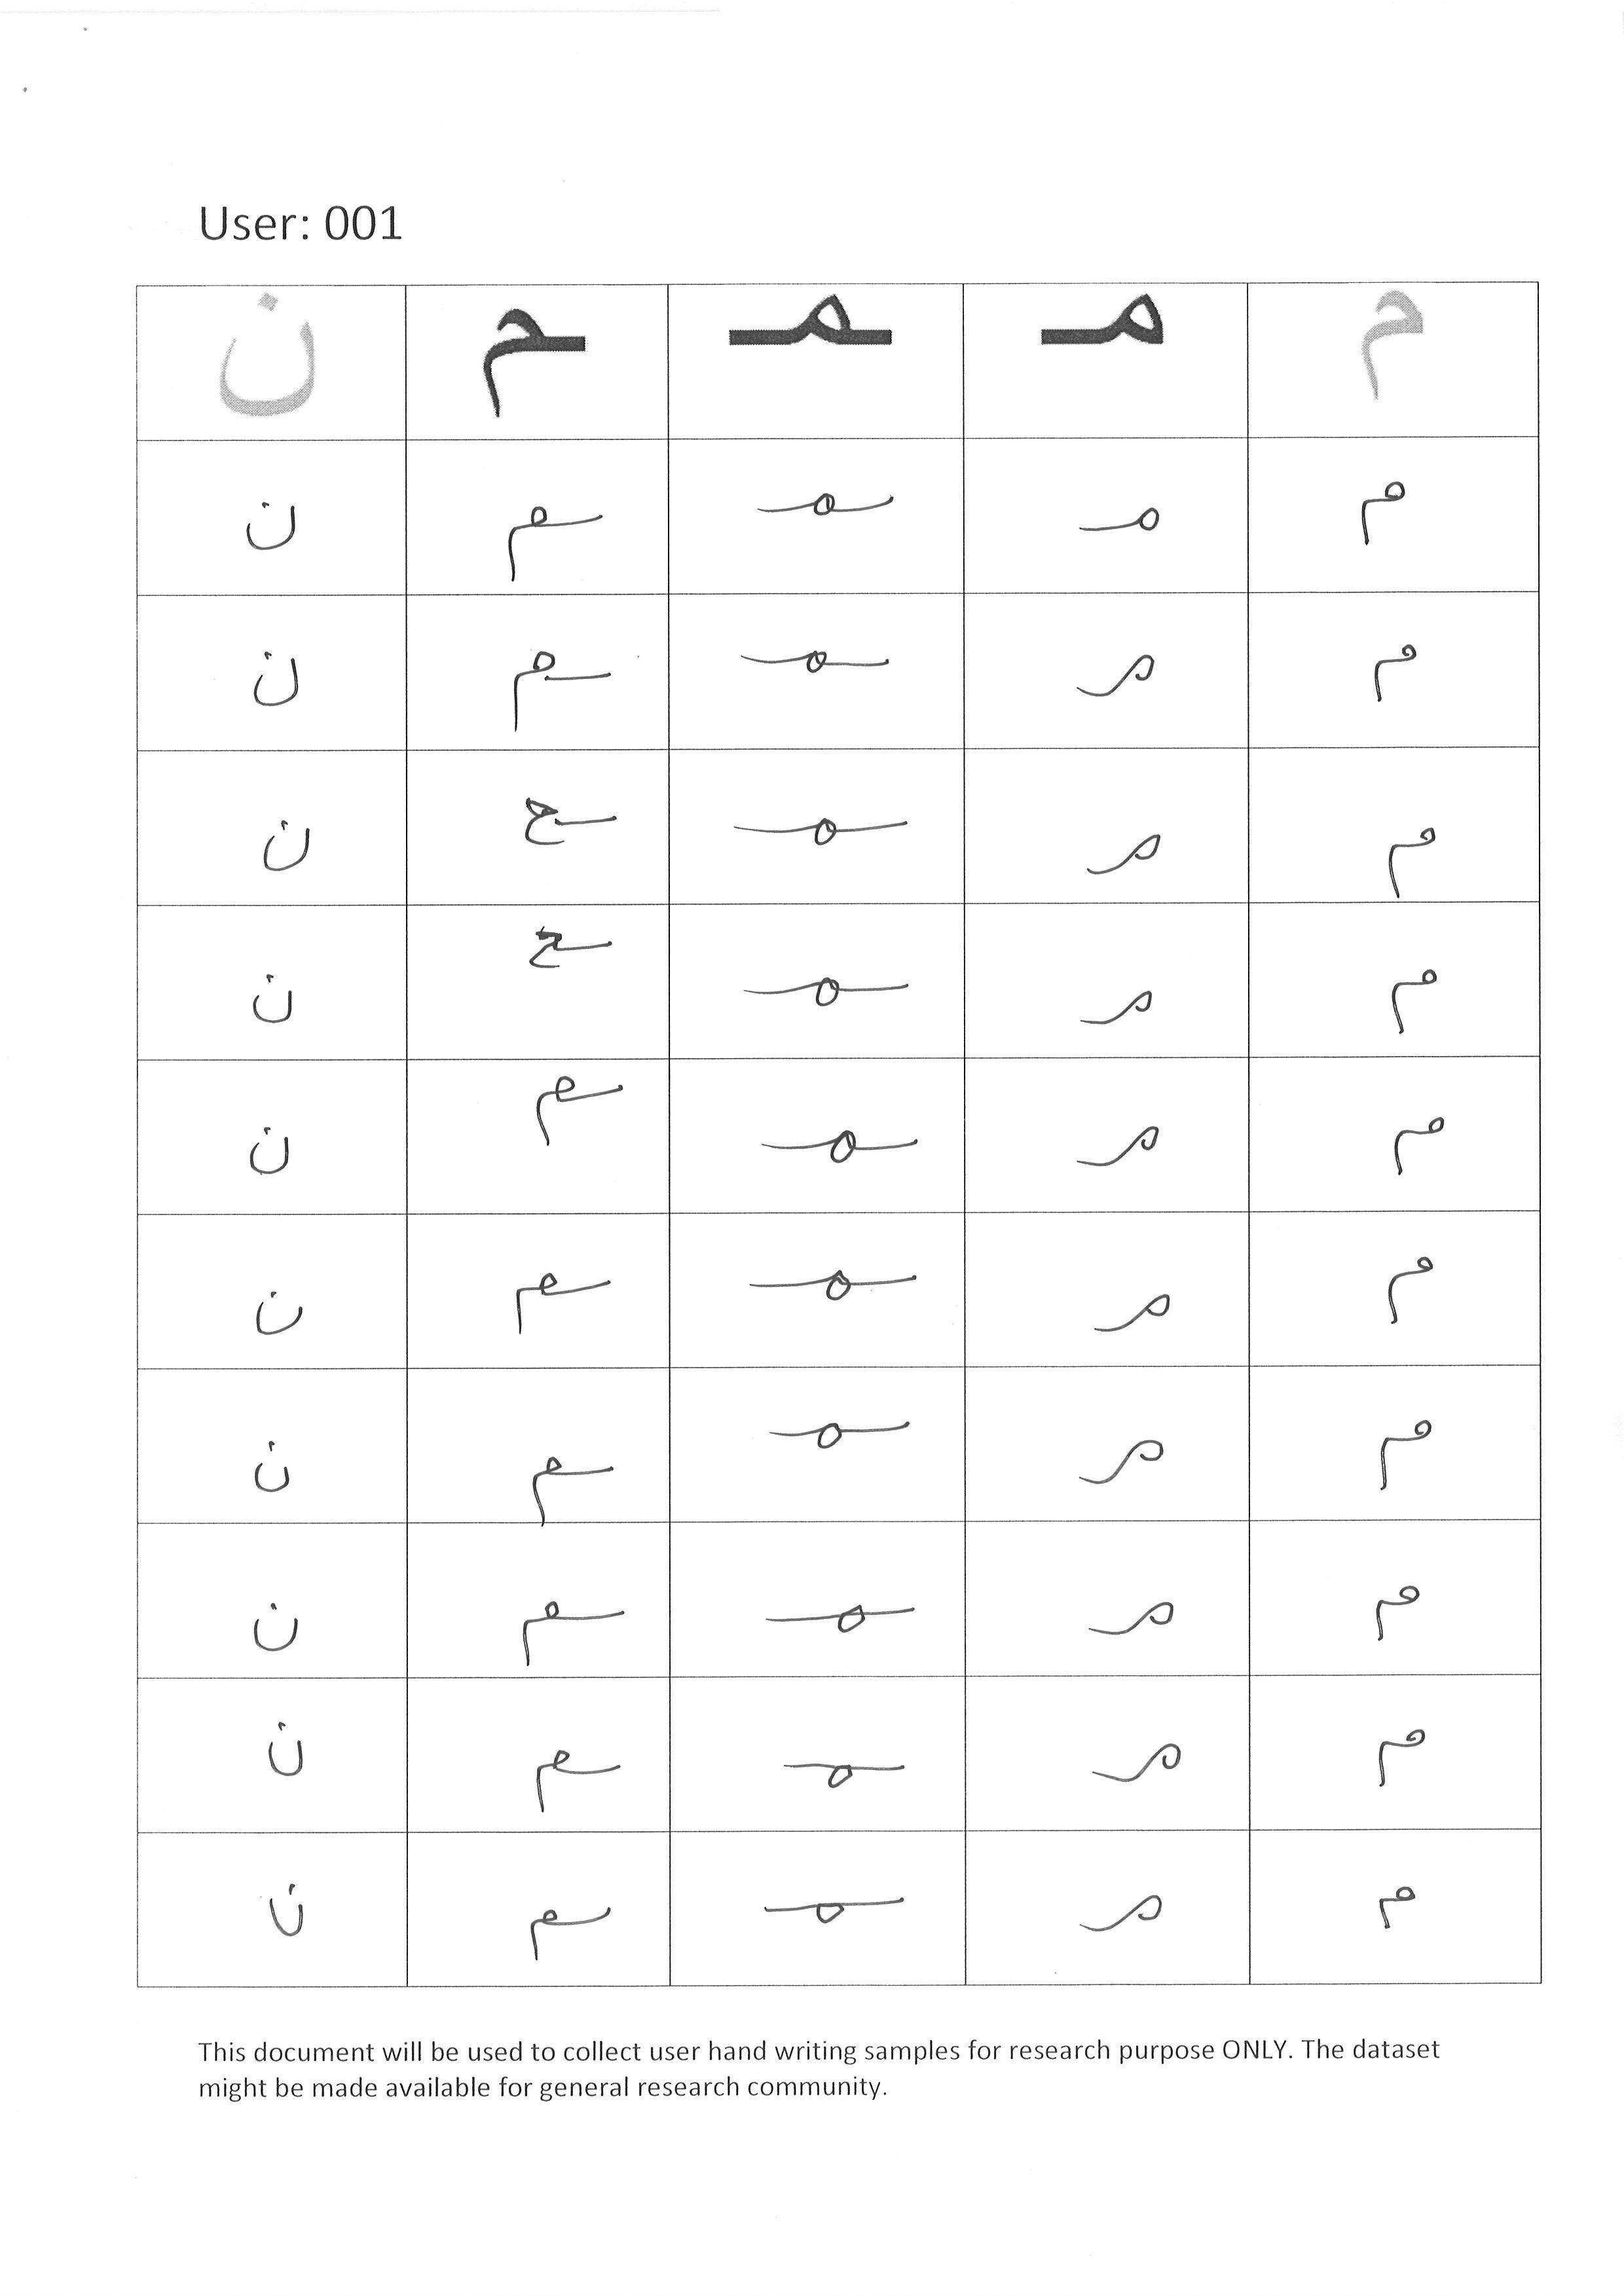 User: 001
م مـ ـمـ ـم ن
م مـ ـمـ ـم ن
م مـ ـمـ ـم ن
م مـ ـمـ ـح ن
م مـ ـمـ ـح ن
م مـ ـمـ ـم ن
م مـ ـمـ ـم ن
م مـ ـمـ ـم ن
م مـ ـمـ ـم ن
م مـ ـمـ ـم ن
م مـ ـمـ ـم ن
This document will be used to collect user hand writing samples for research purpose ONLY. The dataset
might be made available for general research community.